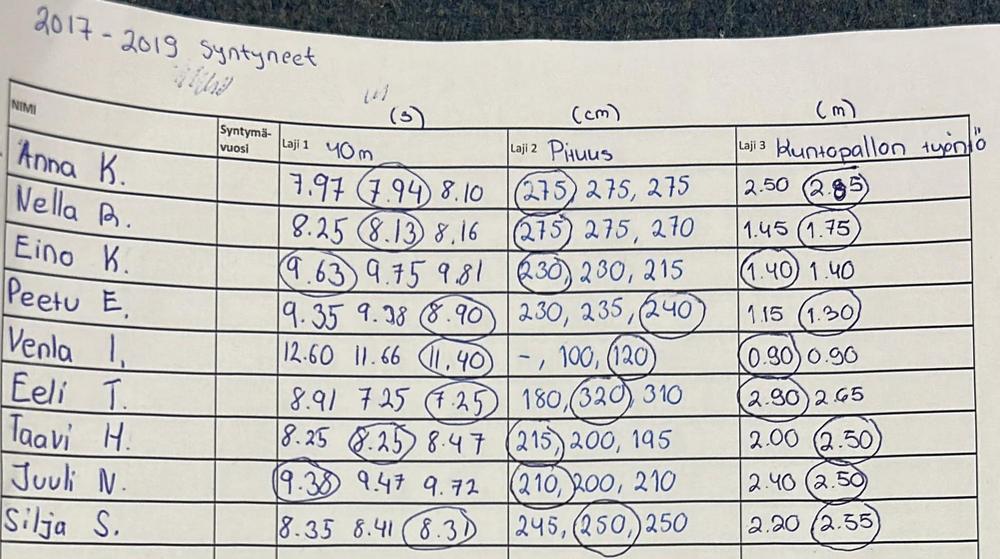 2017 - 2019 syntyneet
(s) (cm) (m)
NIMI Syntymä- vuosi Laji 1 40m Laji 2 Pituus Laji 3 Kuntopallon työntö
Anna K. 7.97 7.94 8.10 275, 275, 275 2.50 2.85
Nella R. 8.25 8.13 8.16 275, 275, 270 1.45 1.75
Eino K. 9.63 9.75 9.81 230, 230, 215 1.40 1.40
Peetu E. 9.35 9.38 8.90 230, 235, 240 1.15 1.30
Venla I. 12.60 11.66 11.40 -, 100, 120 0.90 0.90
Eeli T. 8.91 7.25 7.25 180, 320, 310 2.90 2.65
Taavi H. 8.25 8.25 8.47 215, 200, 195 2.00 2.50
Juuli N. 9.38 9.47 9.72 210, 200, 210 2.40 2.50
Silja S. 8.35 8.41 8.31 245, 250, 250 2.20 2.55